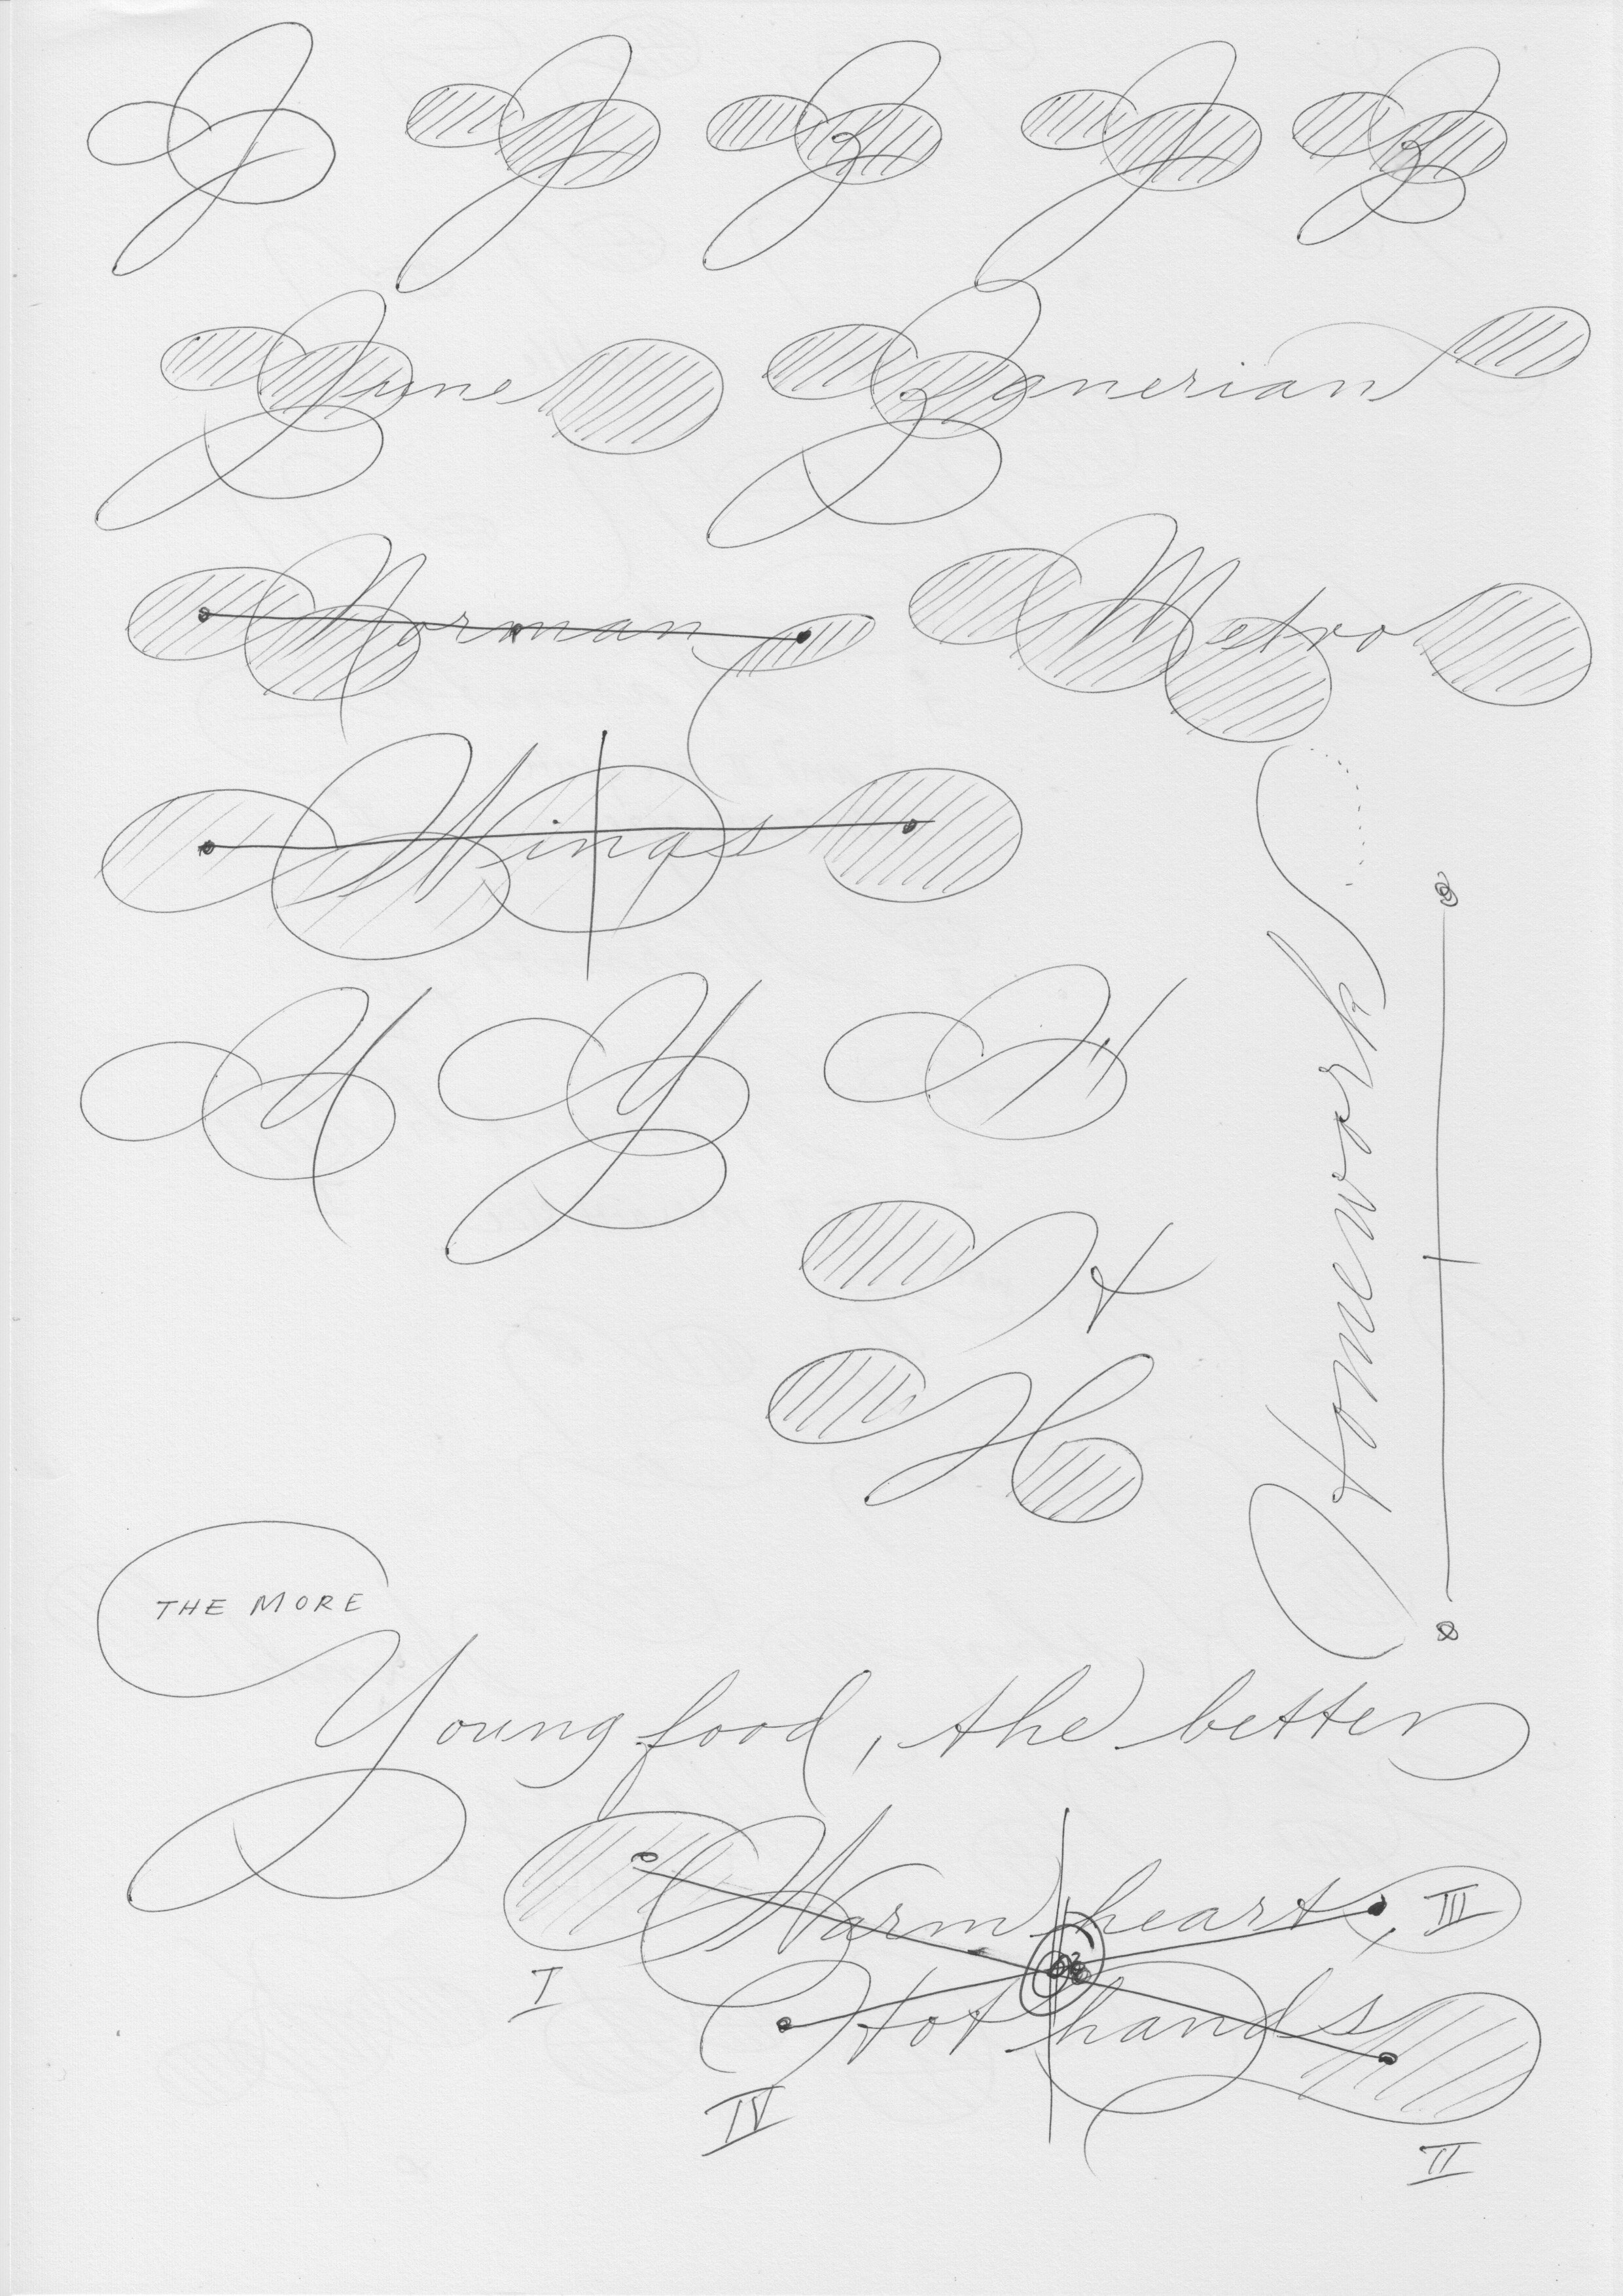 J J Z J Z
June Zanerian
Norman Metro
Wings
Y Y H
H
H
Homework
THE MORE
Young food, the better
Warm heart, III
I
Hot hands
IV
II